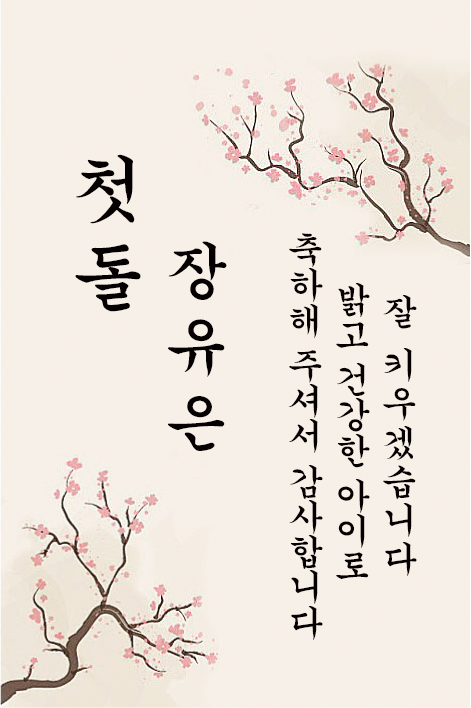 첫돌
장유은
축하해 주셔서 감사합니다
밝고 건강한 아이로
잘 키우겠습니다